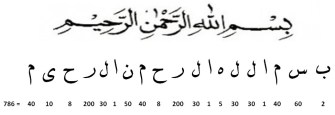 بِسْمِ اللهِ الرَّحْمٰنِ الرَّحِيْمِ
ب س م ا ل ل ه ا ل ر ح م ن ا ل ر ح ی م
786 = 40 10 8 200 30 1 50 40 8 200 30 1 5 30 30 1 40 60 2